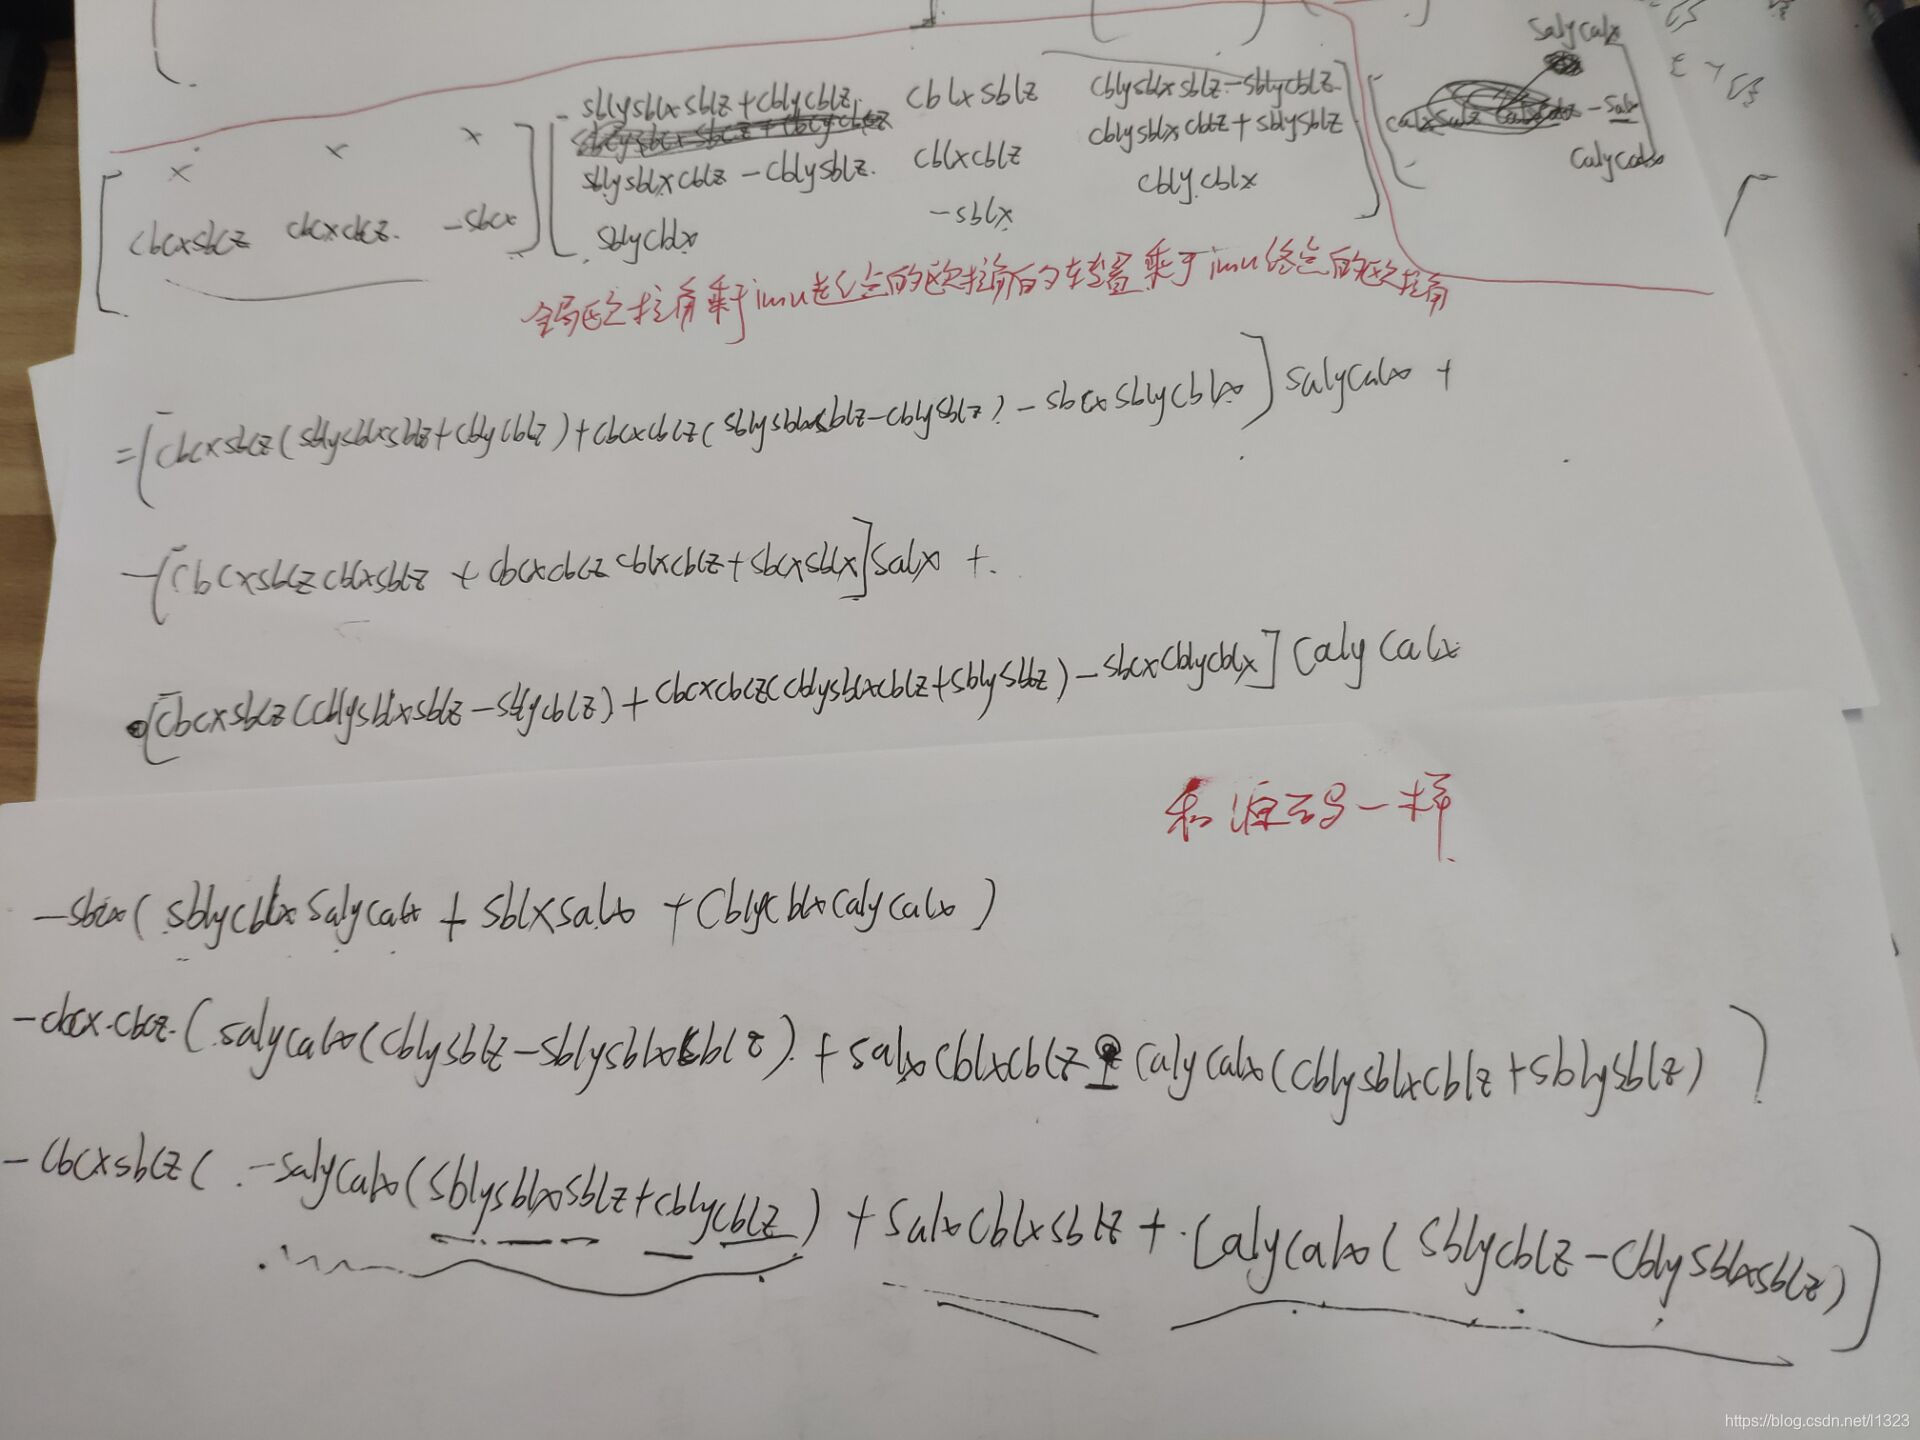 salycalx
sblysblxsblz + cblycblz cblxsblz cblysblxsblz - sblycblz
-salx
sblysblxcblz - cblysblz. cblxcblz cblysblxcblz + sblysblz
calycalx
cbcxsbcz cbcxcbcz. -sbcx sblycblx -sblx cbly.cblx
全局欧拉角乘于imu起始点的欧拉角的转置乘于imu终点的欧拉角
=[cbcxsbcz(sblysblxsblz+cblycblz)+cbcxcbcz(sblysblxsblz-cblysblz)-sbcxsblycblx]salycalx +
-[cbcxsbczcblxsblz + cbcxcbczcblxcblz+sbcxsblx]salx +.
[cbcxsbcz(cblysblxsblz-sblycblz)+cbcxcbcz(cblysblxcblz+sblysblz)-sbcxcblycblx]calycalx
和源码一样
-sbcx(sblycblxsalycalx + sblxsalx + cblycblxcalycalx)
-cbcx.cbcz.(salycalx(cblysblz-sblysblxcblz).+salxcblxcblz calycalx(cblysblxcblz+sblysblz))
-cbcxsbcz(.-salycalx(sblysblxsblz+cblycblz)+salxcblxsblz+.calycalx(sblycblz-cblysblxsblz))
https://blog.csdn.net/l1323